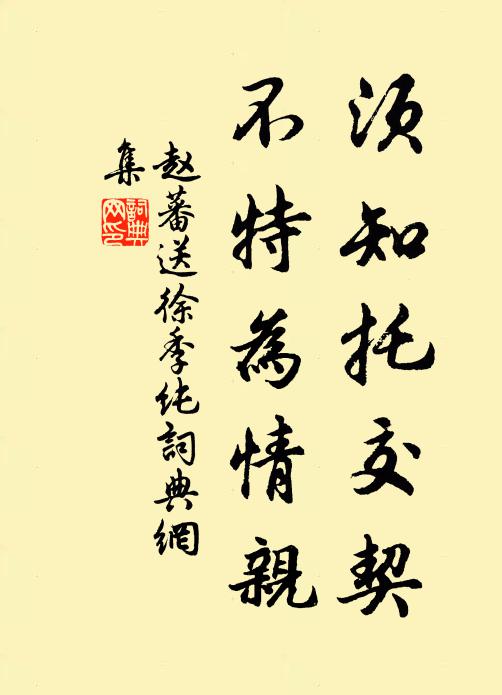 须知托交契
不特為情親
赵蕃送徐季纯詞典網
集
詞典
网印